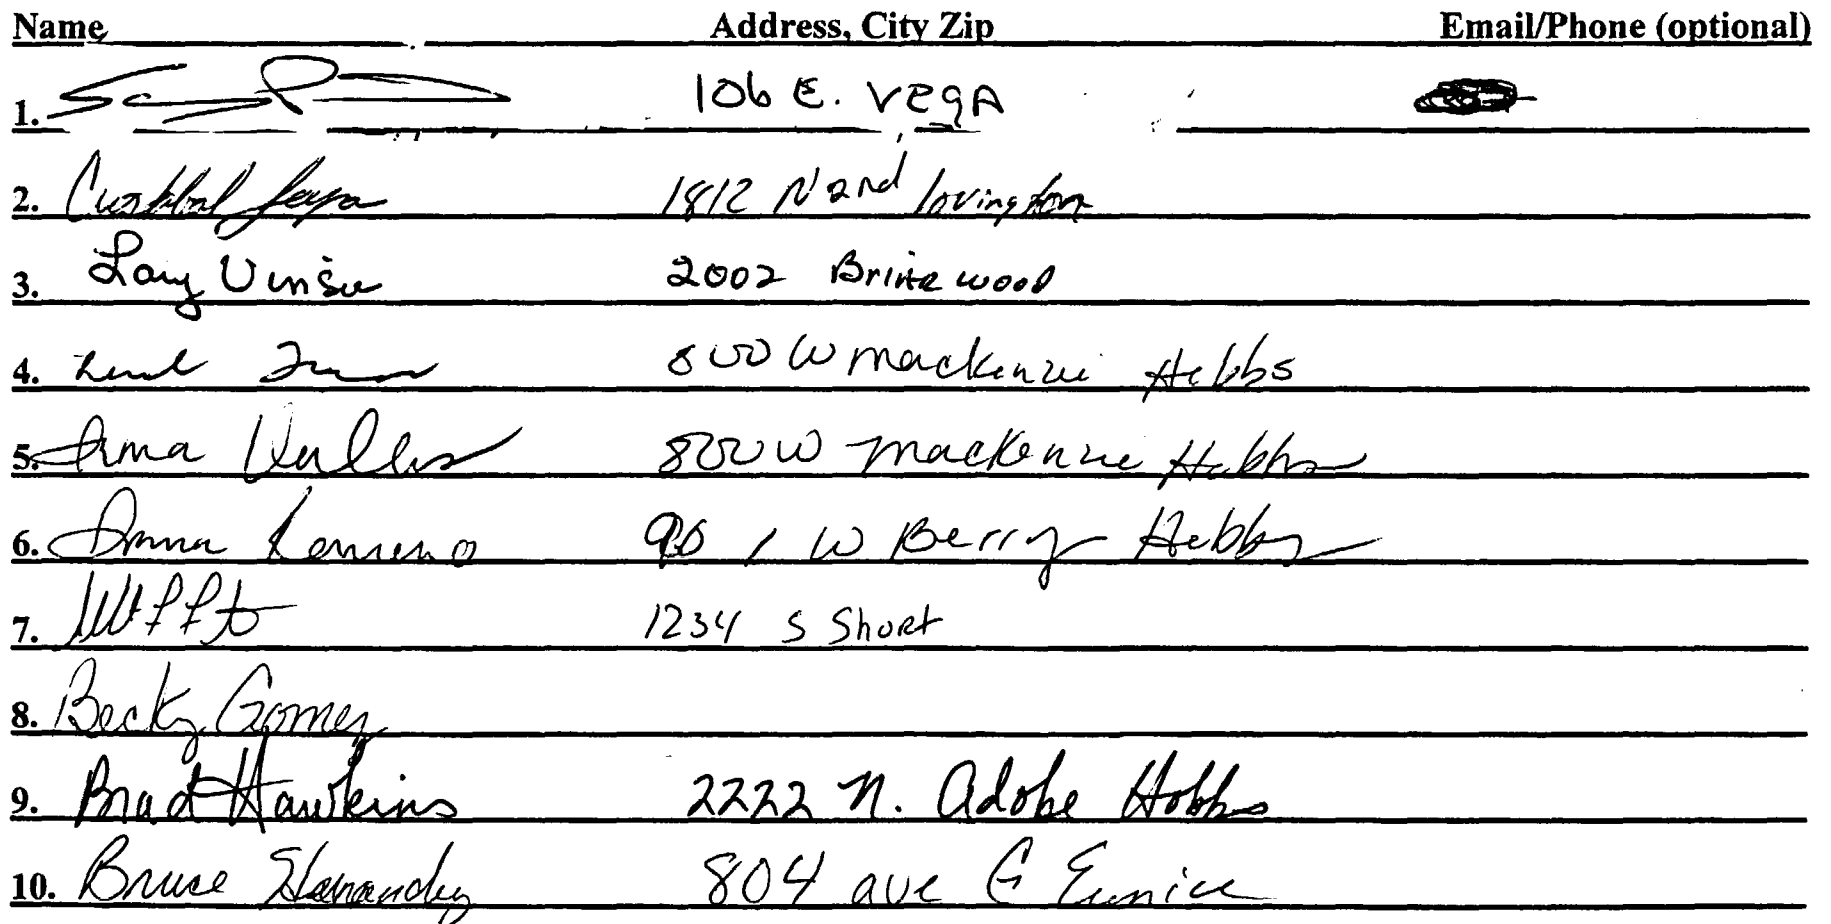 Name Address, City Zip Email/Phone (optional)
1. 106 E. Vega
2. 1812 N 2nd lovington
3. Larry Vinson 2002 Briarwood
4. 800 W Mackenzie Hobbs
5. Irma 800 W Mackenzie Hobbs
6. W Berry Hobbs
7. 1234 S Short
8. Becky Gomez
9. Brad Hawkins 2222 N. Adobe Hobbs
10. Bruce Hernandez 804 ave G Eunice